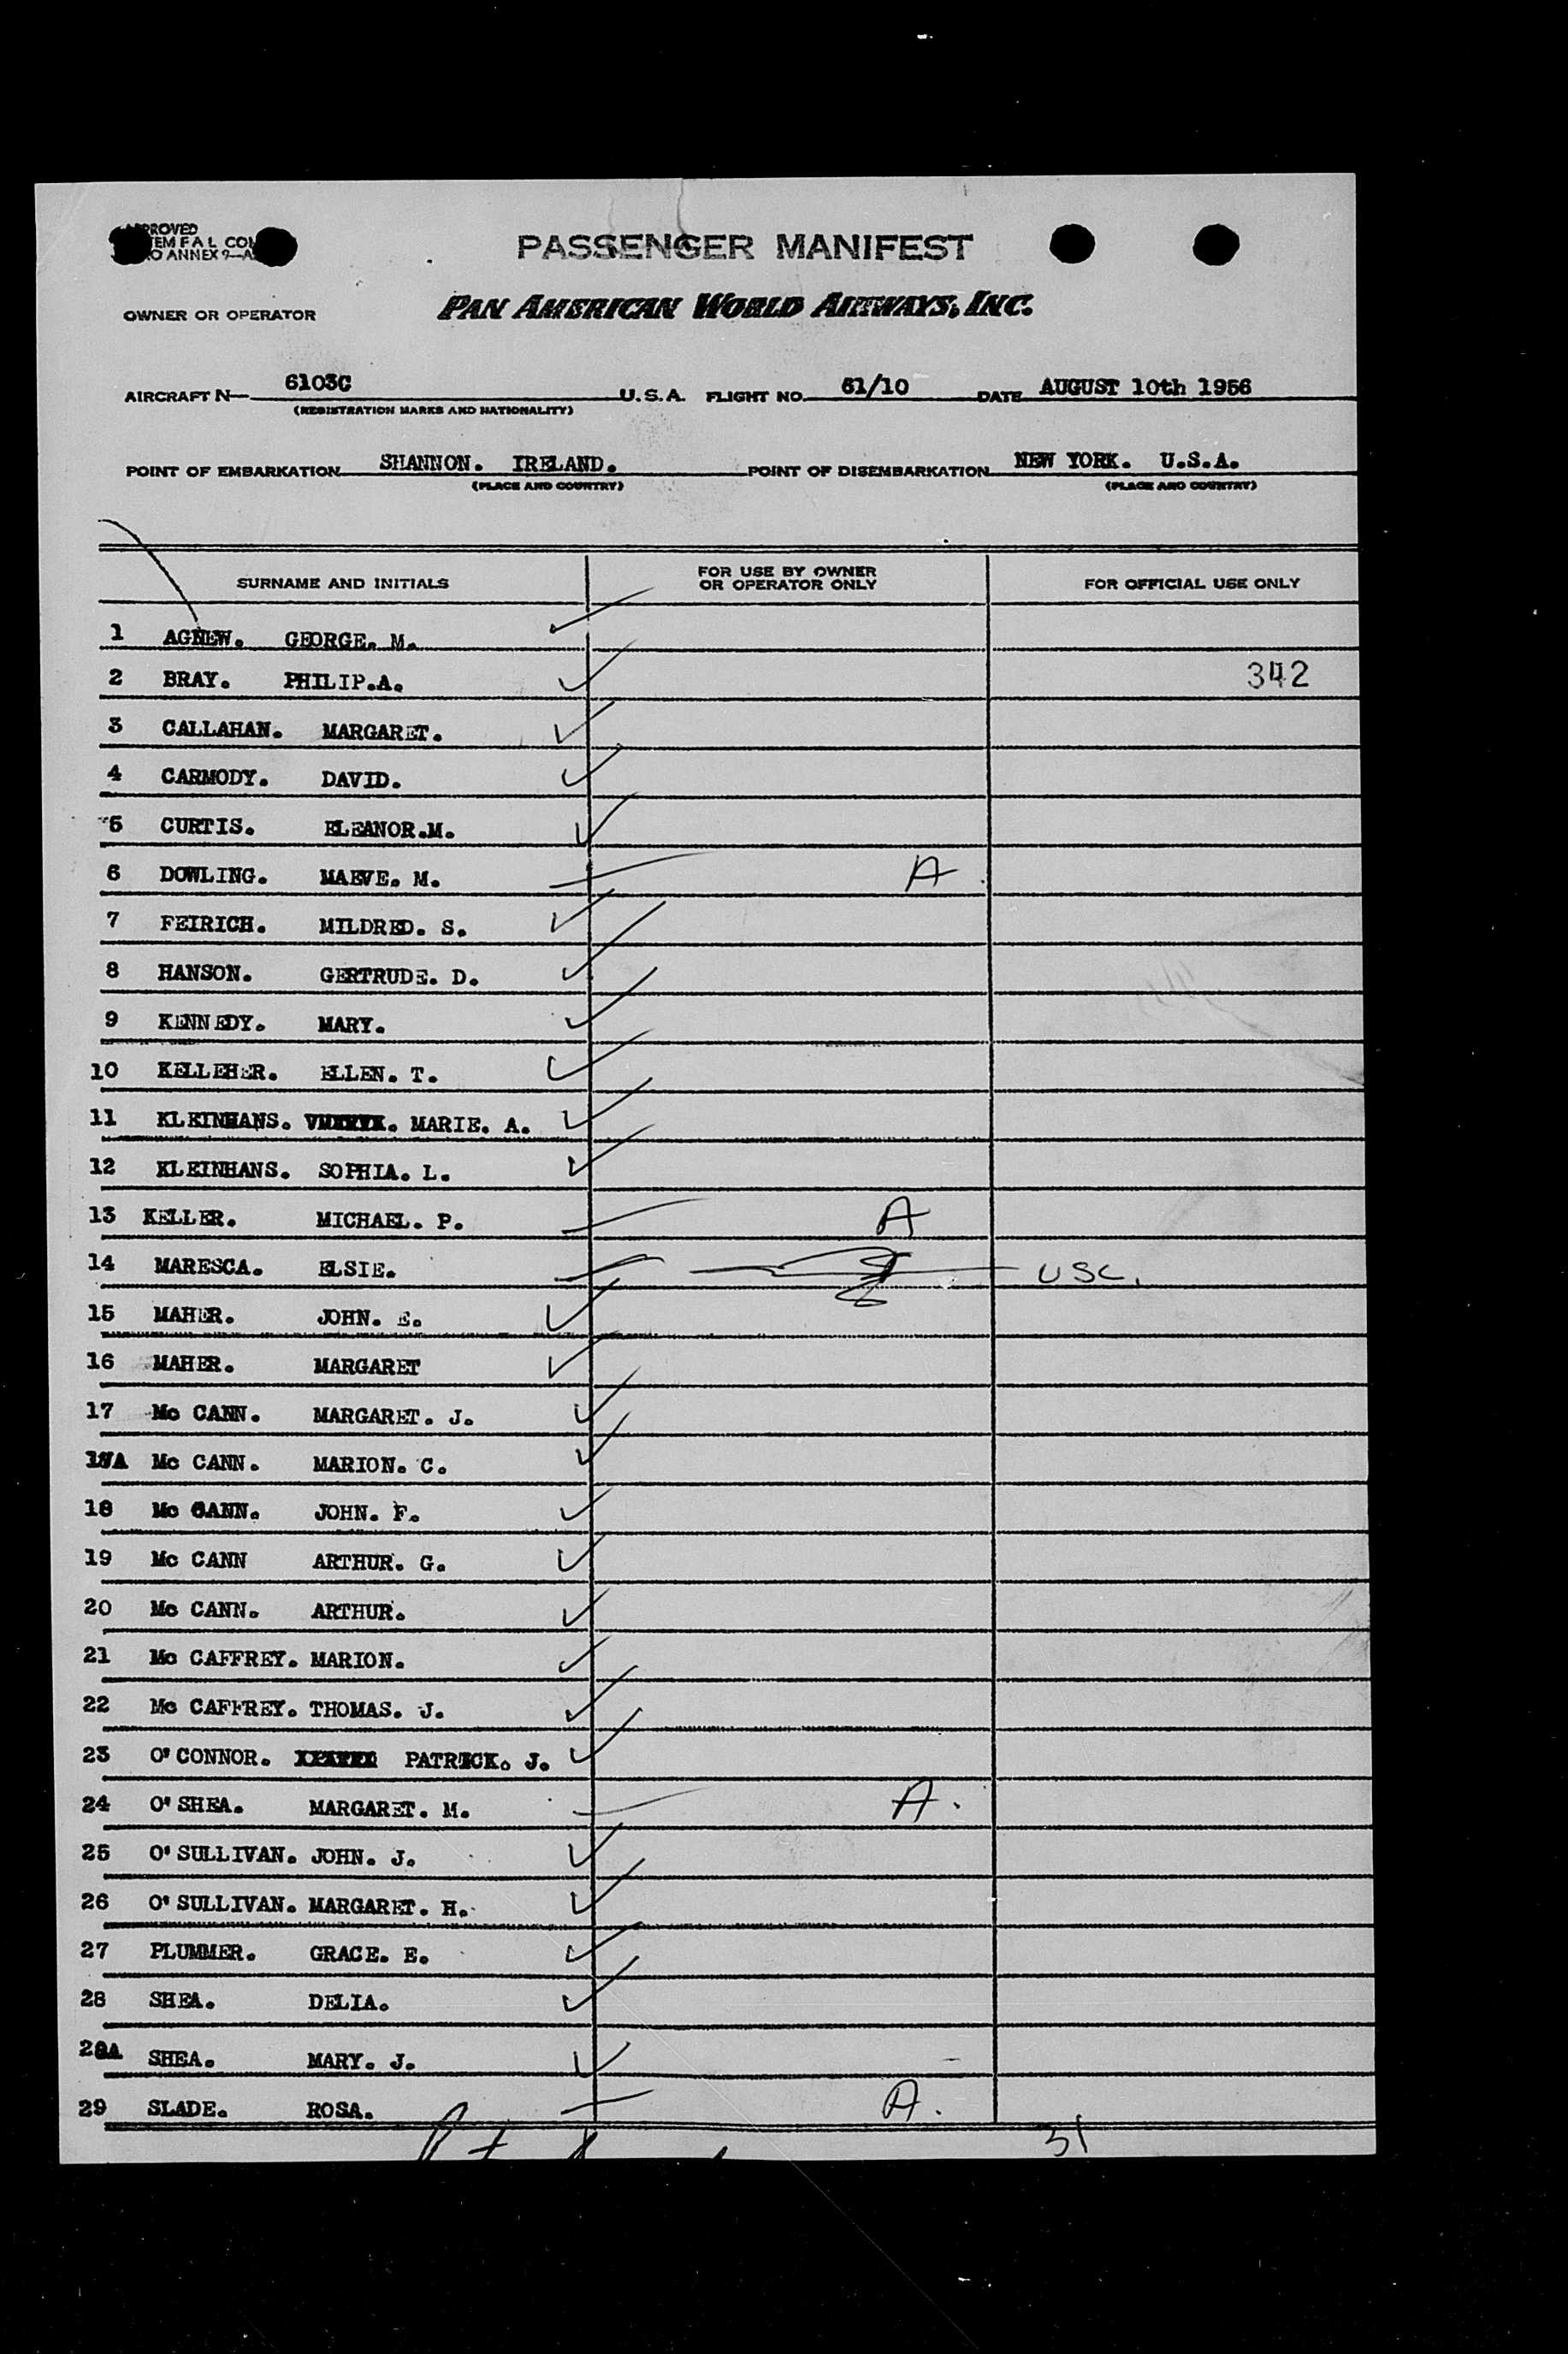 PROVED
TEM F A L CO
O ANNEX 9-A
PASSENGER MANIFEST
OWNER OR OPERATOR PAN AMERICAN WORLD AIRWAYS, INC.
AIRCRAFT N- 6103C U.S.A. FLIGHT NO. 61/10 DATE AUGUST 10th 1956
(REGISTRATION MARKS AND NATIONALITY)
POINT OF EMBARKATION SHANNON. IRELAND. POINT OF DISEMBARKATION NEW YORK. U.S.A.
(PLACE AND COUNTRY) (PLACE AND COUNTRY)
SURNAME AND INITIALS FOR USE BY OWNER OR OPERATOR ONLY FOR OFFICIAL USE ONLY
1 AGNEW. GEORGE. M.
2 BRAY. PHILIP.A. 342
3 CALLAHAN. MARGARET.
4 CARMODY. DAVID.
5 CURTIS. ELEANOR.M.
6 DOWLING. MAEVE. M. A
7 FEIRICH. MILDRED. S.
8 HANSON. GERTRUDE. D.
9 KENNEDY. MARY.
10 KELLEHER. ELLEN. T.
11 KLEINHANS. MARIE. A.
12 KLEINHANS. SOPHIA. L.
13 KELLER. MICHAEL. P. A
14 MARESCA. ELSIE. USC.
15 MAHER. JOHN. E.
16 MAHER. MARGARET
17 Mc CANN. MARGARET. J.
17A Mc CANN. MARION. C.
18 Mc CANN. JOHN. F.
19 Mc CANN ARTHUR. G.
20 Mc CANN. ARTHUR.
21 Mc CAFFREY. MARION.
22 Mc CAFFREY. THOMAS. J.
23 O'CONNOR. PATRICK. J.
24 O'SHEA. MARGARET. M. A.
25 O'SULLIVAN. JOHN. J.
26 O'SULLIVAN. MARGARET. H.
27 PLUMMER. GRACE. E.
28 SHEA. DELIA.
28A SHEA. MARY. J.
29 SLADE. ROSA. A.
31